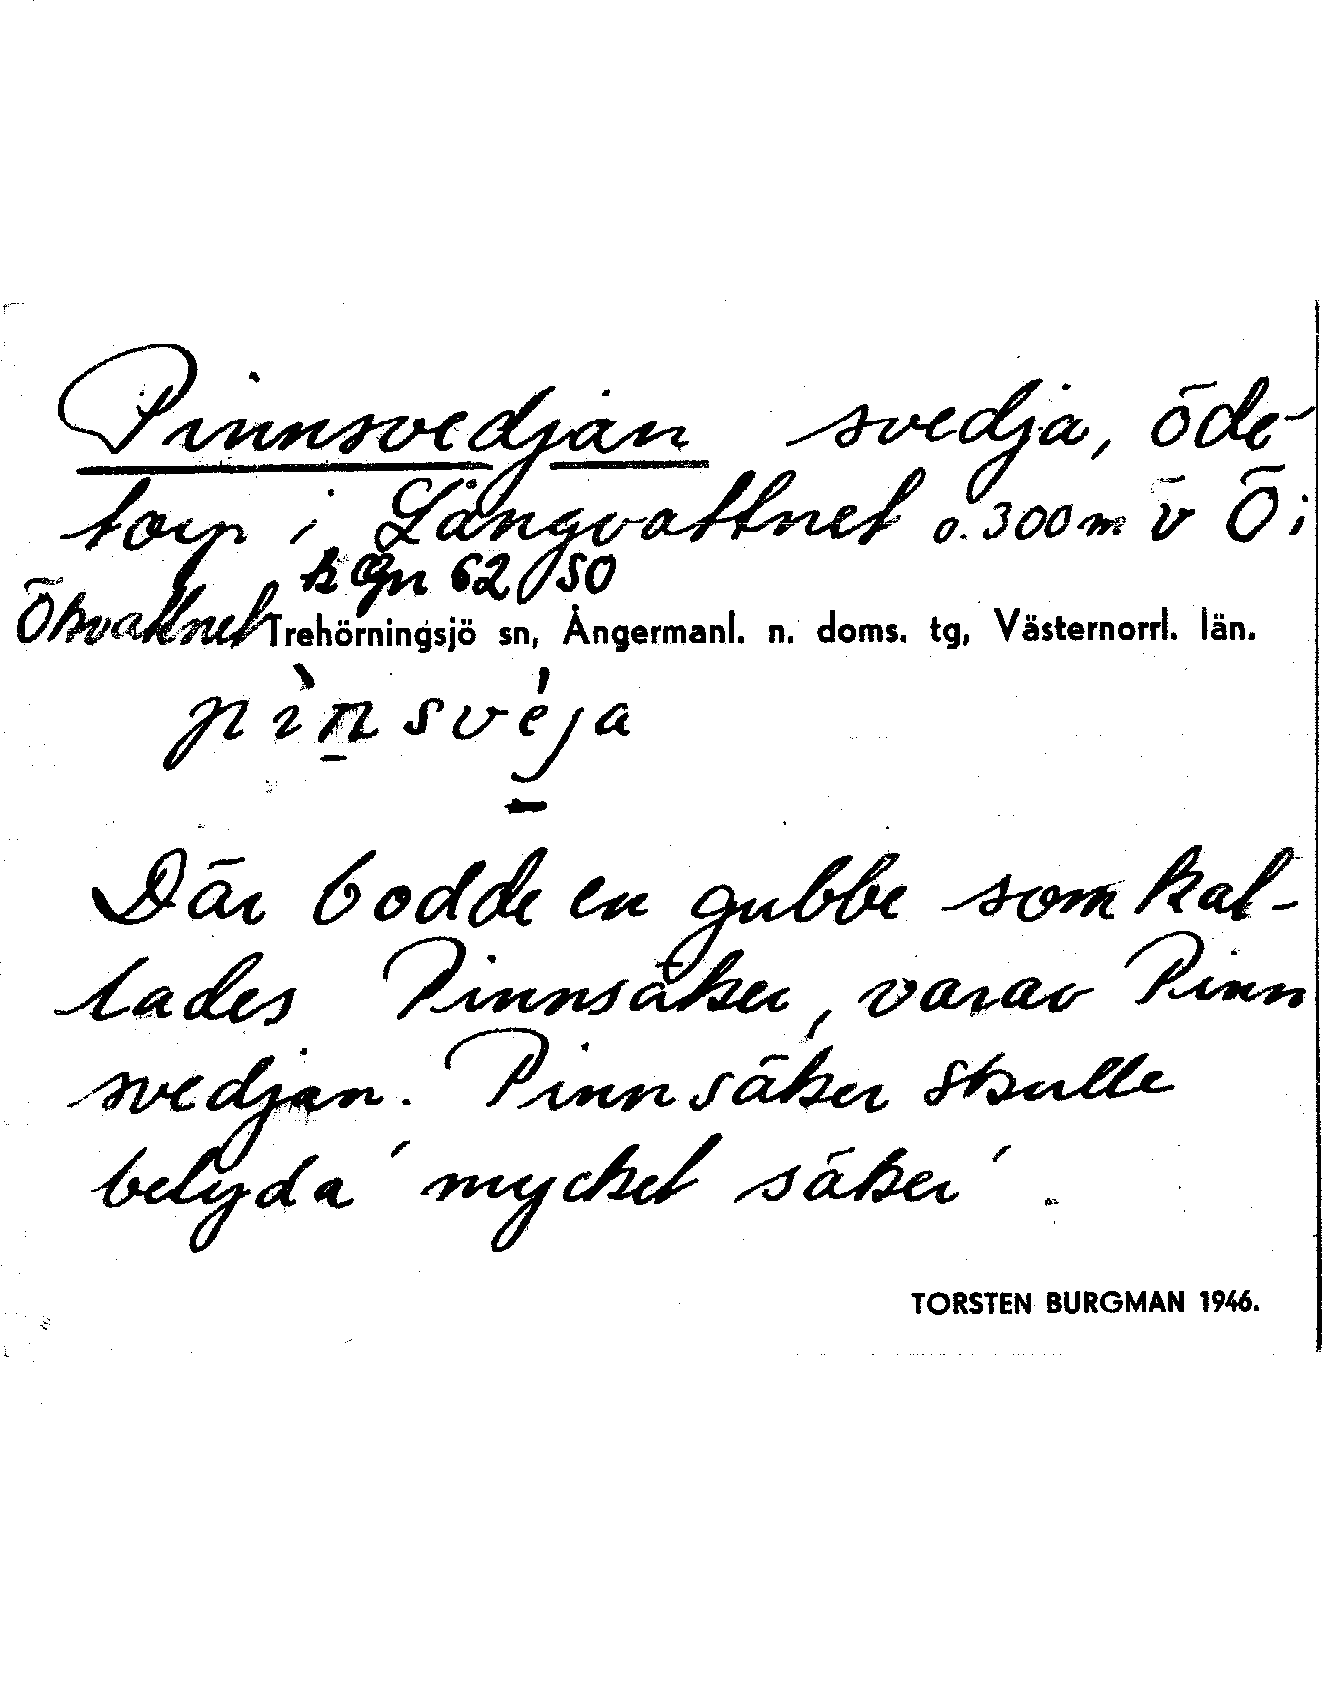 Pinnsvedjan svedja, öde-
torp i Långvattnet o. 300 m v Ö i
k Gn 62 50
Ökvattnet Trehörningsjö sn, Ångermanl. n. doms. tg, Västernorrl. län.
pìnsvéja
Där bodde en gubbe som kal-
lades Pinnsäker, varav Pinn
svedjan. Pinnsäker skulle
betyda 'mycket säker'.
TORSTEN BURGMAN 1946.